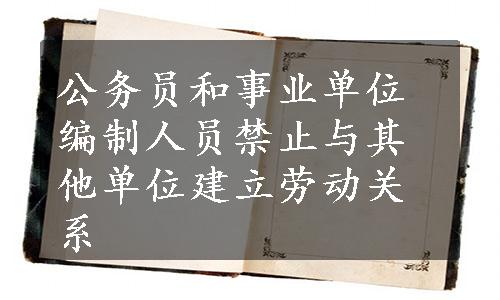 公务员和事业单位
编制人员禁止与其
他单位建立劳动关
系